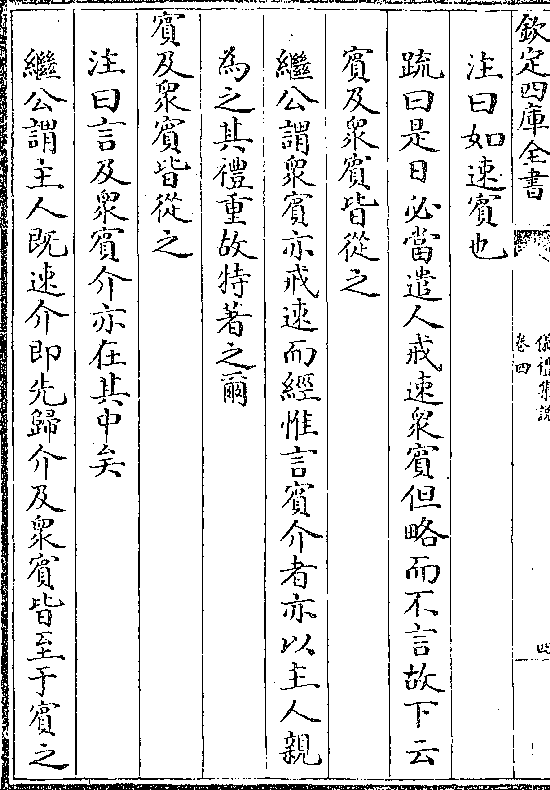 欽定四庫全書
儀禮集說
卷四
四
注曰如速賓也
疏曰是日必當遣人戒速衆賓但略而不言故下云
賓及衆賓皆從之
繼公謂衆賓亦戒速而經惟言賓介者亦以主人親
為之其禮重故特著之爾
賓及衆賓皆從之
注曰言及衆賓介亦在其中矣
繼公謂主人既速介即先歸介及衆賓皆至于賓之